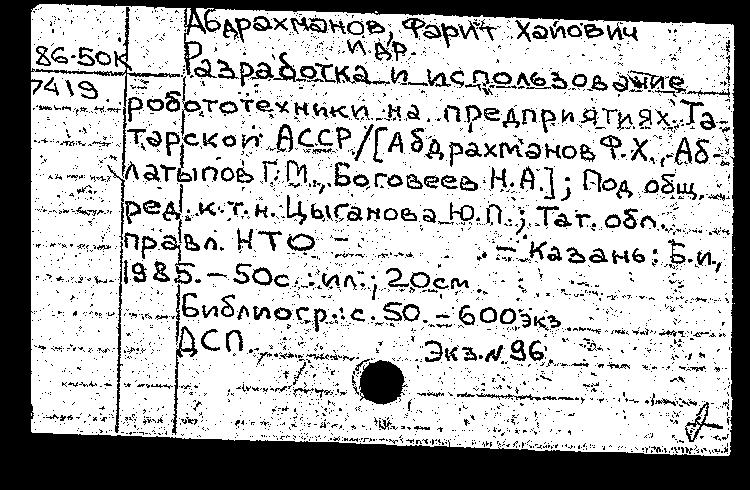 Абдрахманов, Фарит Хайович
и др.
86-50К
Разработка и использование
7419
робототехники на предприятиях Та-
тарской АССР/[Абдрахманов Ф.Х., Аб-
латыпов Г.М., Боговеев Н.А.]; Под общ.
ред. к.т.н. Цыганова Ю.П.; Тат. обл.
правл. НТО - . - Казань: Б.и.,
1985. - 50с.: ил.; 20см.
Библиогр.: с. 50. - 600экз
ДСП. Экз. N 96.